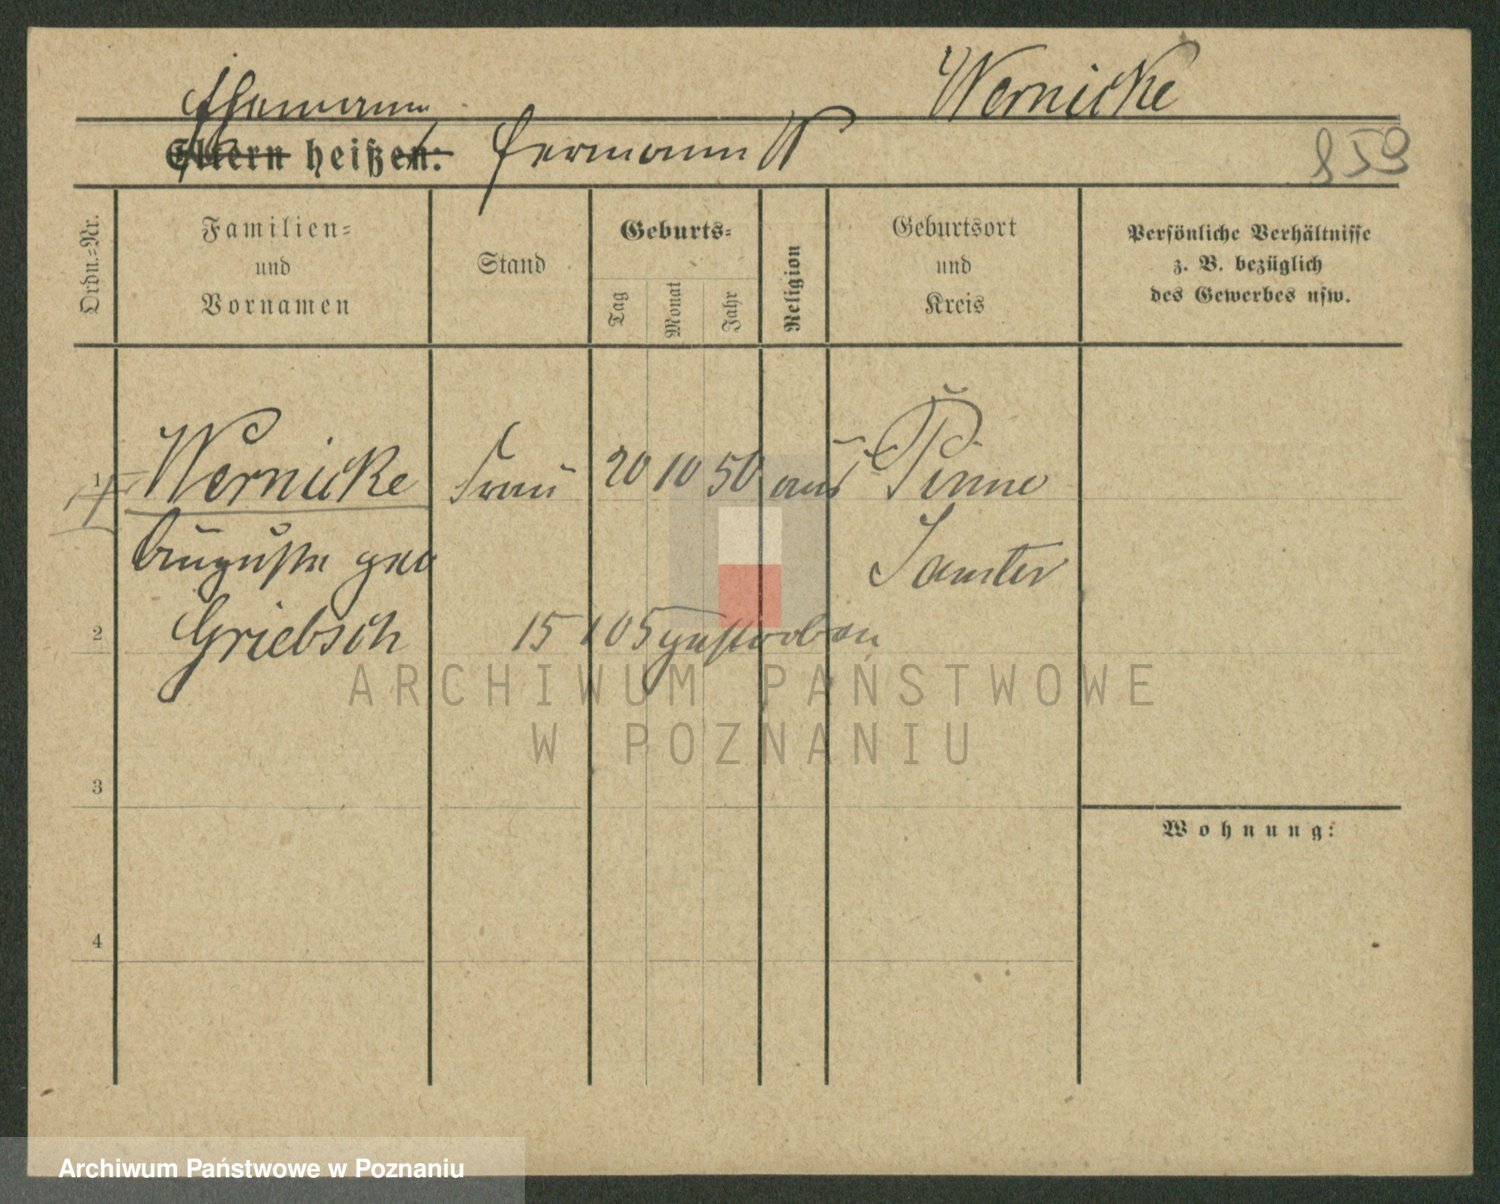 Wernicke
Ehemann
Eltern heißen: Hermann W
859
Ordn.-Nr.
Familien-
und
Vornamen
Stand
Geburts-
Tag
Monat
Jahr
Religion
Geburtsort
und
Kreis
Persönliche Verhältnisse
z. B. bezüglich
des Gewerbes usw.
1
Wernicke
Frau
20
10
50
Pinne
Auguste geb
Samter
2
Griebsch
15 10 5 gestorben
3
4
Wohnung:
ARCHIWUM PAŃSTWOWE
W POZNANIU
Archiwum Państwowe w Poznaniu